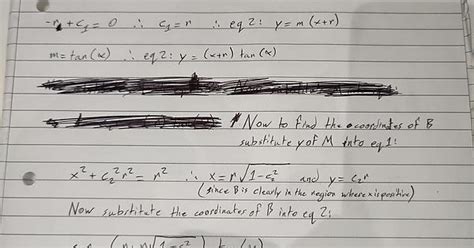 -r + c₁ = 0 ∴ c₁ = r ∴ eq 2: y = m (x+r)
m = tan(α) ∴ eq 2: y = (x+r) tan(α)
Now to find the coordinates of B
substitute y of M into eq 1:
x² + c₂²r² = r² ∴ x = r√1-c₂² and y = c₂r
(since B is clearly in the region where x is positive)
Now substitute the coordinates of B into eq 2: